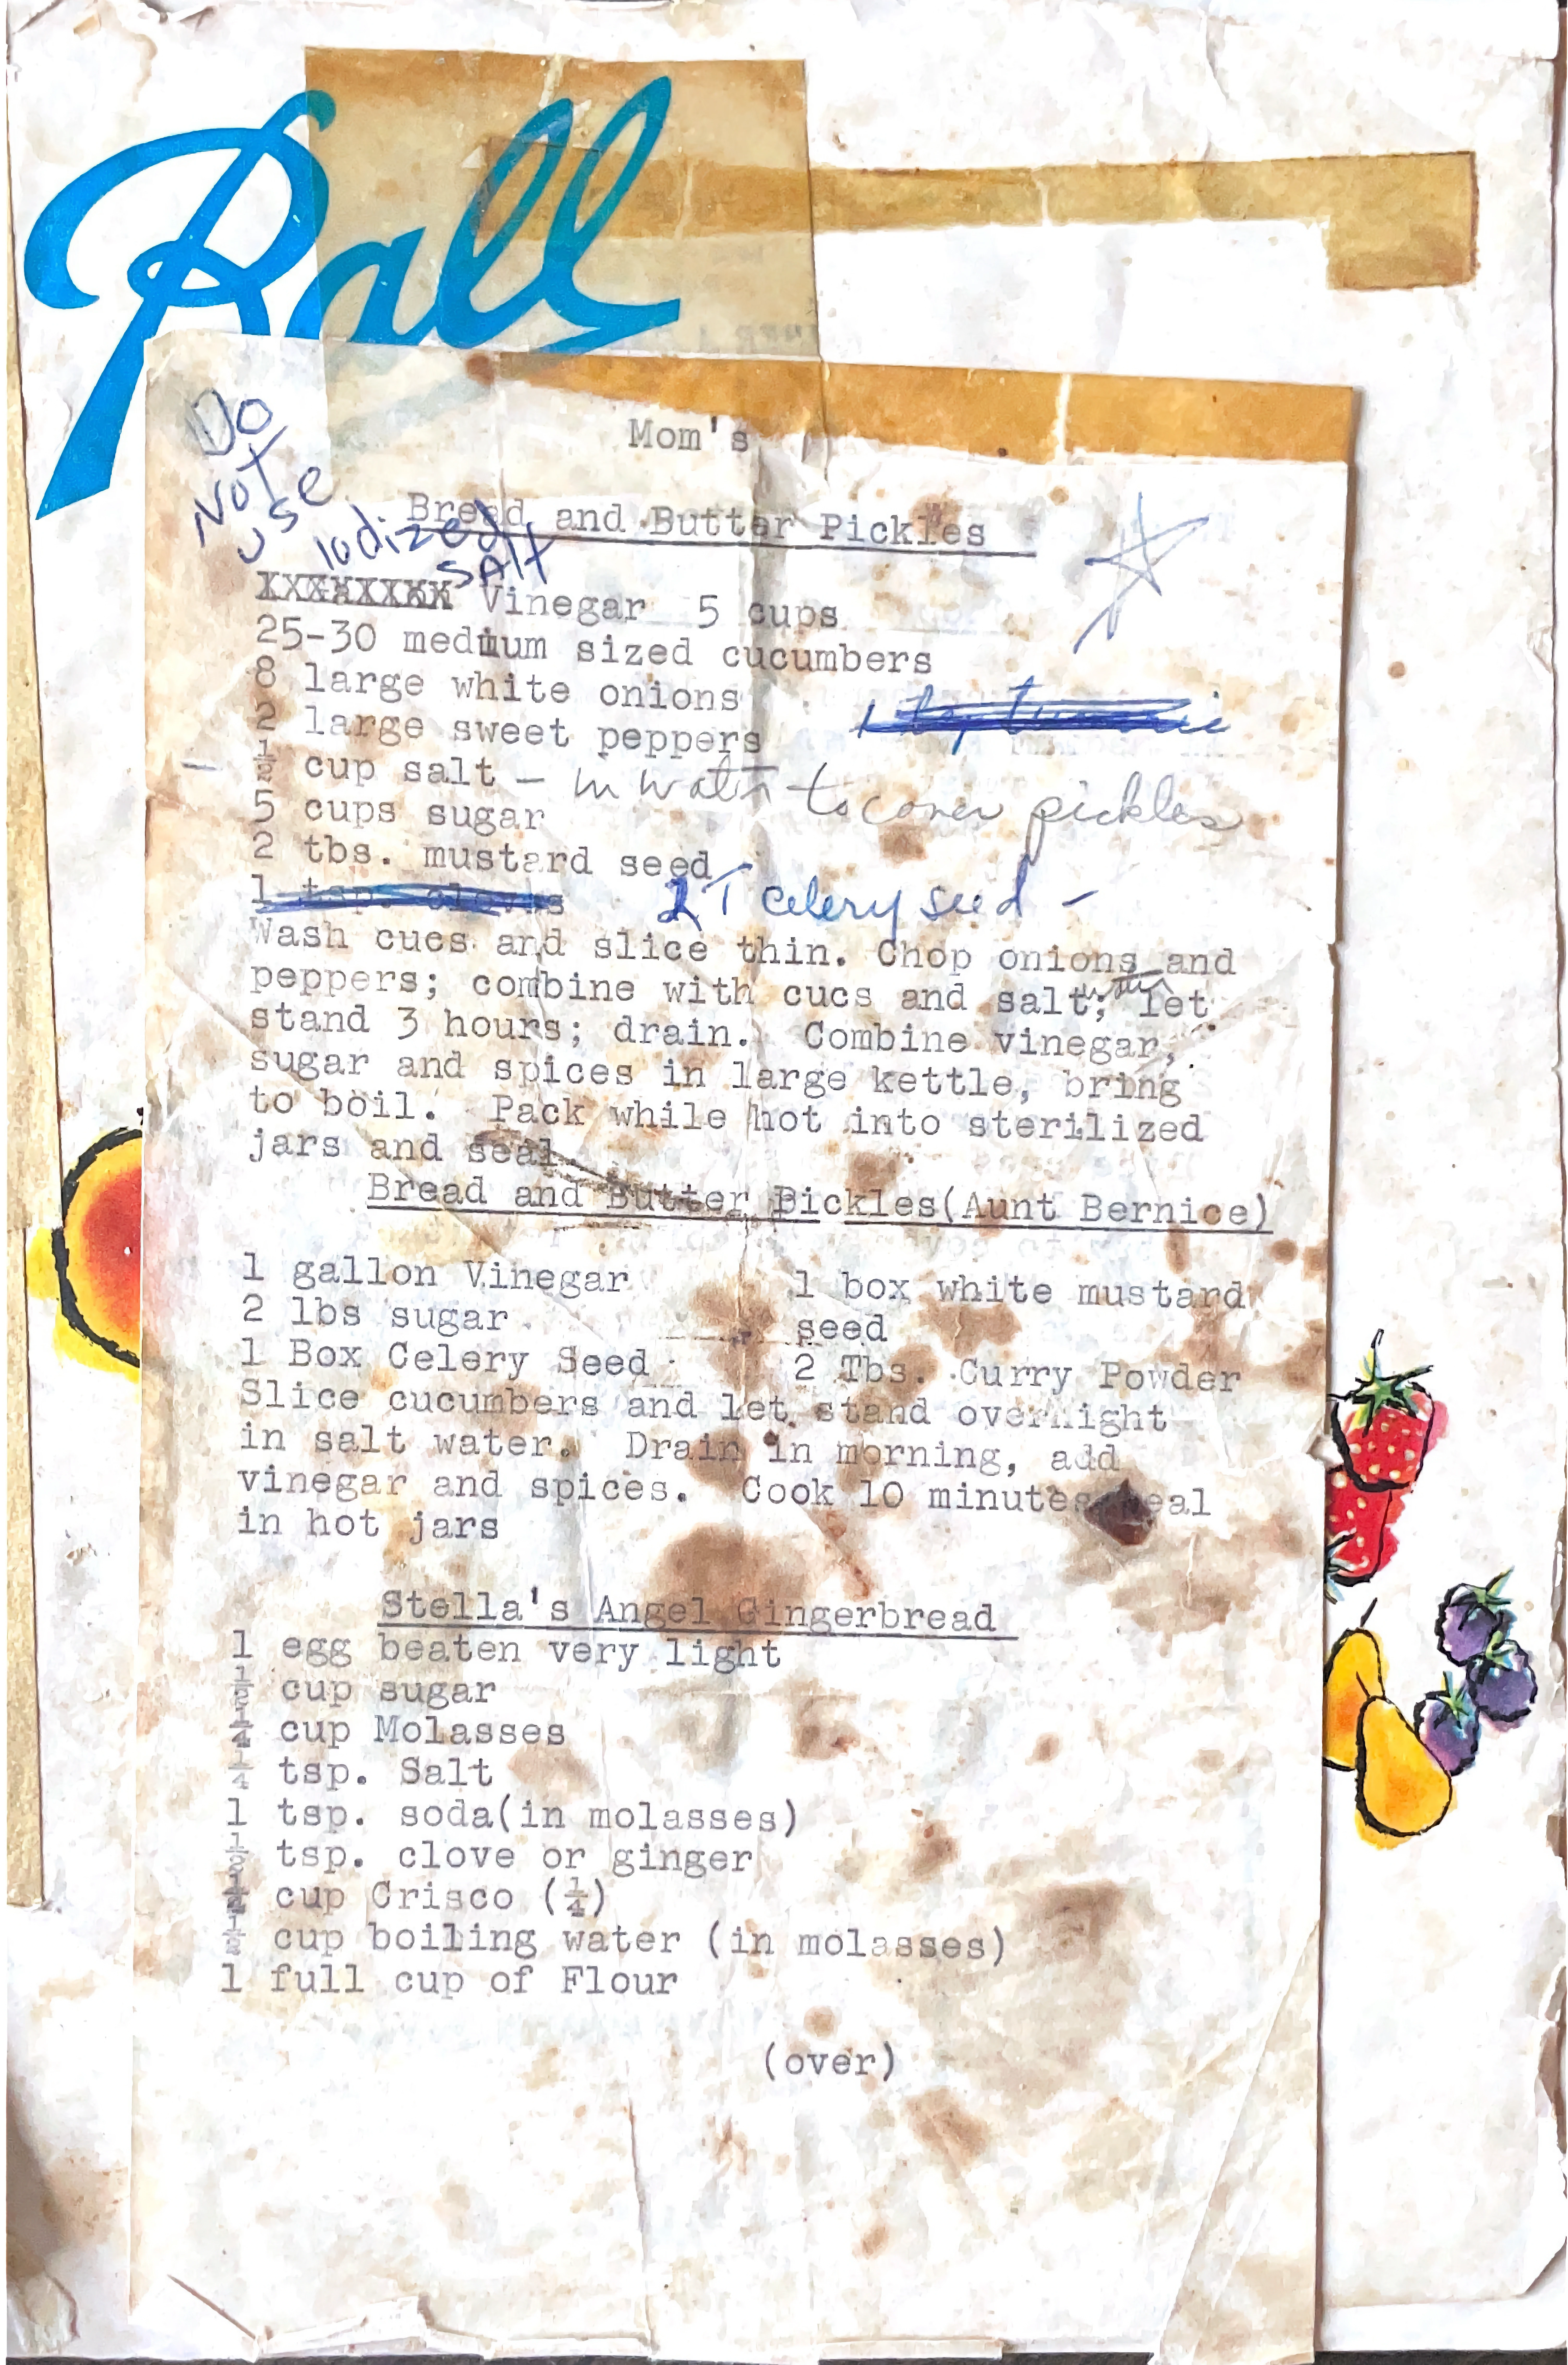 Ball
Mom's
Do
Not
use
Iodized
SAlt
Bread and Butter Pickles
XXXXXXXX Vinegar 5 cups
25-30 medium sized cucumbers
8 large white onions
2 large sweet peppers
1 tsp tumeric
½ cup salt - in water to cover pickles
5 cups sugar
2 tbs. mustard seed
1 tsp. cloves 2 T celery seed -
Wash cucs and slice thin. Chop onions and
peppers; combine with cucs and salt; water let
stand 3 hours; drain. Combine vinegar,
sugar and spices in large kettle, bring
to boil. Pack while hot into sterilized
jars and seal.
Bread and Butter Pickles(Aunt Bernice)
1 gallon Vinegar 1 box white mustard
2 lbs sugar seed
1 Box Celery Seed 2 Tbs. Curry Powder
Slice cucumbers and let stand overnight
in salt water. Drain in morning, add
vinegar and spices. Cook 10 minutes eal
in hot jars
Stella's Angel Gingerbread
1 egg beaten very light
½ cup sugar
¼ cup Molasses
¼ tsp. Salt
1 tsp. soda(in molasses)
½ tsp. clove or ginger
cup Crisco (¼)
½ cup boiling water (in molasses)
1 full cup of Flour
(over)